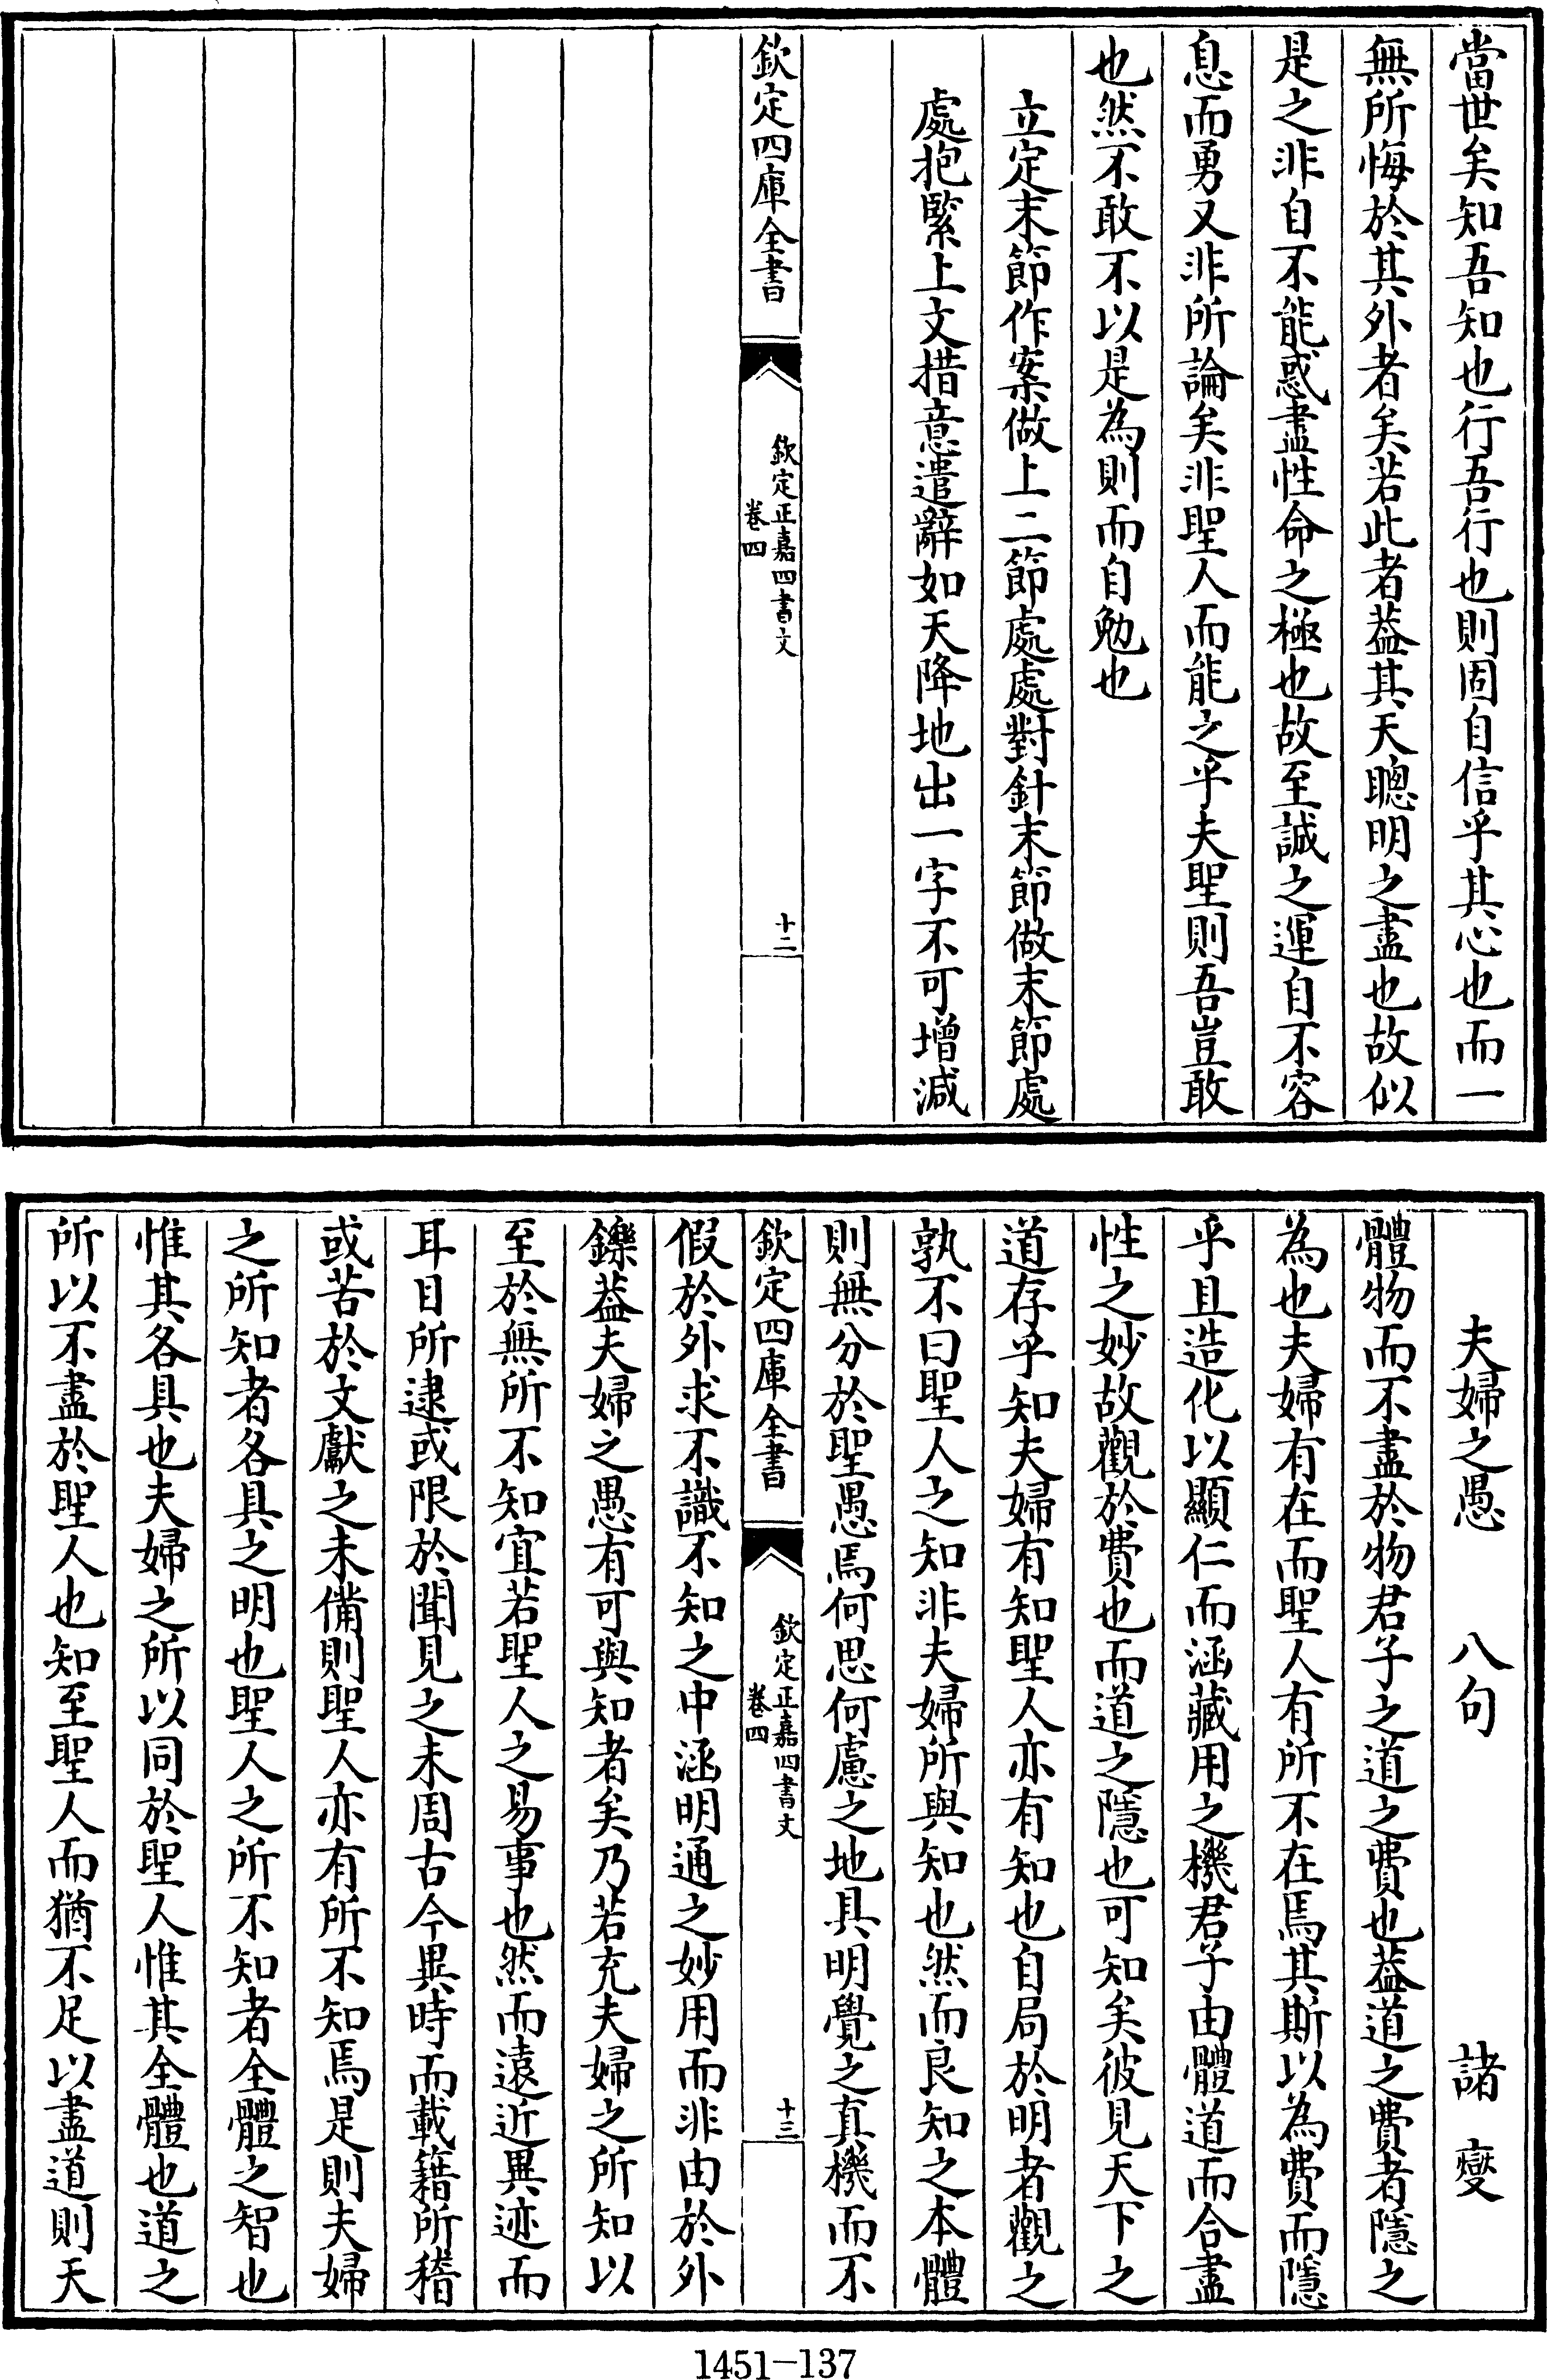 當世矣知吾知也行吾行也則固自信乎其心也而一
無所悔於其外者矣若此者葢其天聰明之盡也故似
是之非自不能惑盡性命之極也故至誠之運自不容
息而勇又非所論矣非聖人而能之乎夫聖則吾豈敢
也然不敢不以是為則而自勉也
立定末節作案做上二節處處對針末節做末節處
處抱緊上文措意遣辭如天降地出一字不可增減
欽定四庫全書
欽定正嘉四書文
卷四
十二
夫婦之愚 八句 諸燮
體物而不盡於物君子之道之費也葢道之費者隱之
為也夫婦有在而聖人有所不在焉其斯以為費而隱
乎且造化以顯仁而涵藏用之機君子由體道而合盡
性之妙故觀於費也而道之隱也可知矣彼見天下之
道存乎知夫婦有知聖人亦有知也自局於明者觀之
孰不曰聖人之知非夫婦所與知也然而良知之本體
則無分於聖愚焉何思何慮之地具明覺之真機而不
欽定四庫全書
欽定正嘉四書文
卷四
十三
假於外求不識不知之中涵明通之妙用而非由於外
鑠葢夫婦之愚有可與知者矣乃若充夫婦之所知以
至於無所不知宜若聖人之易事也然而遠近異迹而
耳目所逮或限於聞見之未周古今異時而載籍所稽
或苦於文獻之未備則聖人亦有所不知焉是則夫婦
之所知者各具之明也聖人之所不知者全體之智也
惟其各具也夫婦之所以同於聖人惟其全體也道之
所以不盡於聖人也知至聖人而猶不足以盡道則天
1451-137